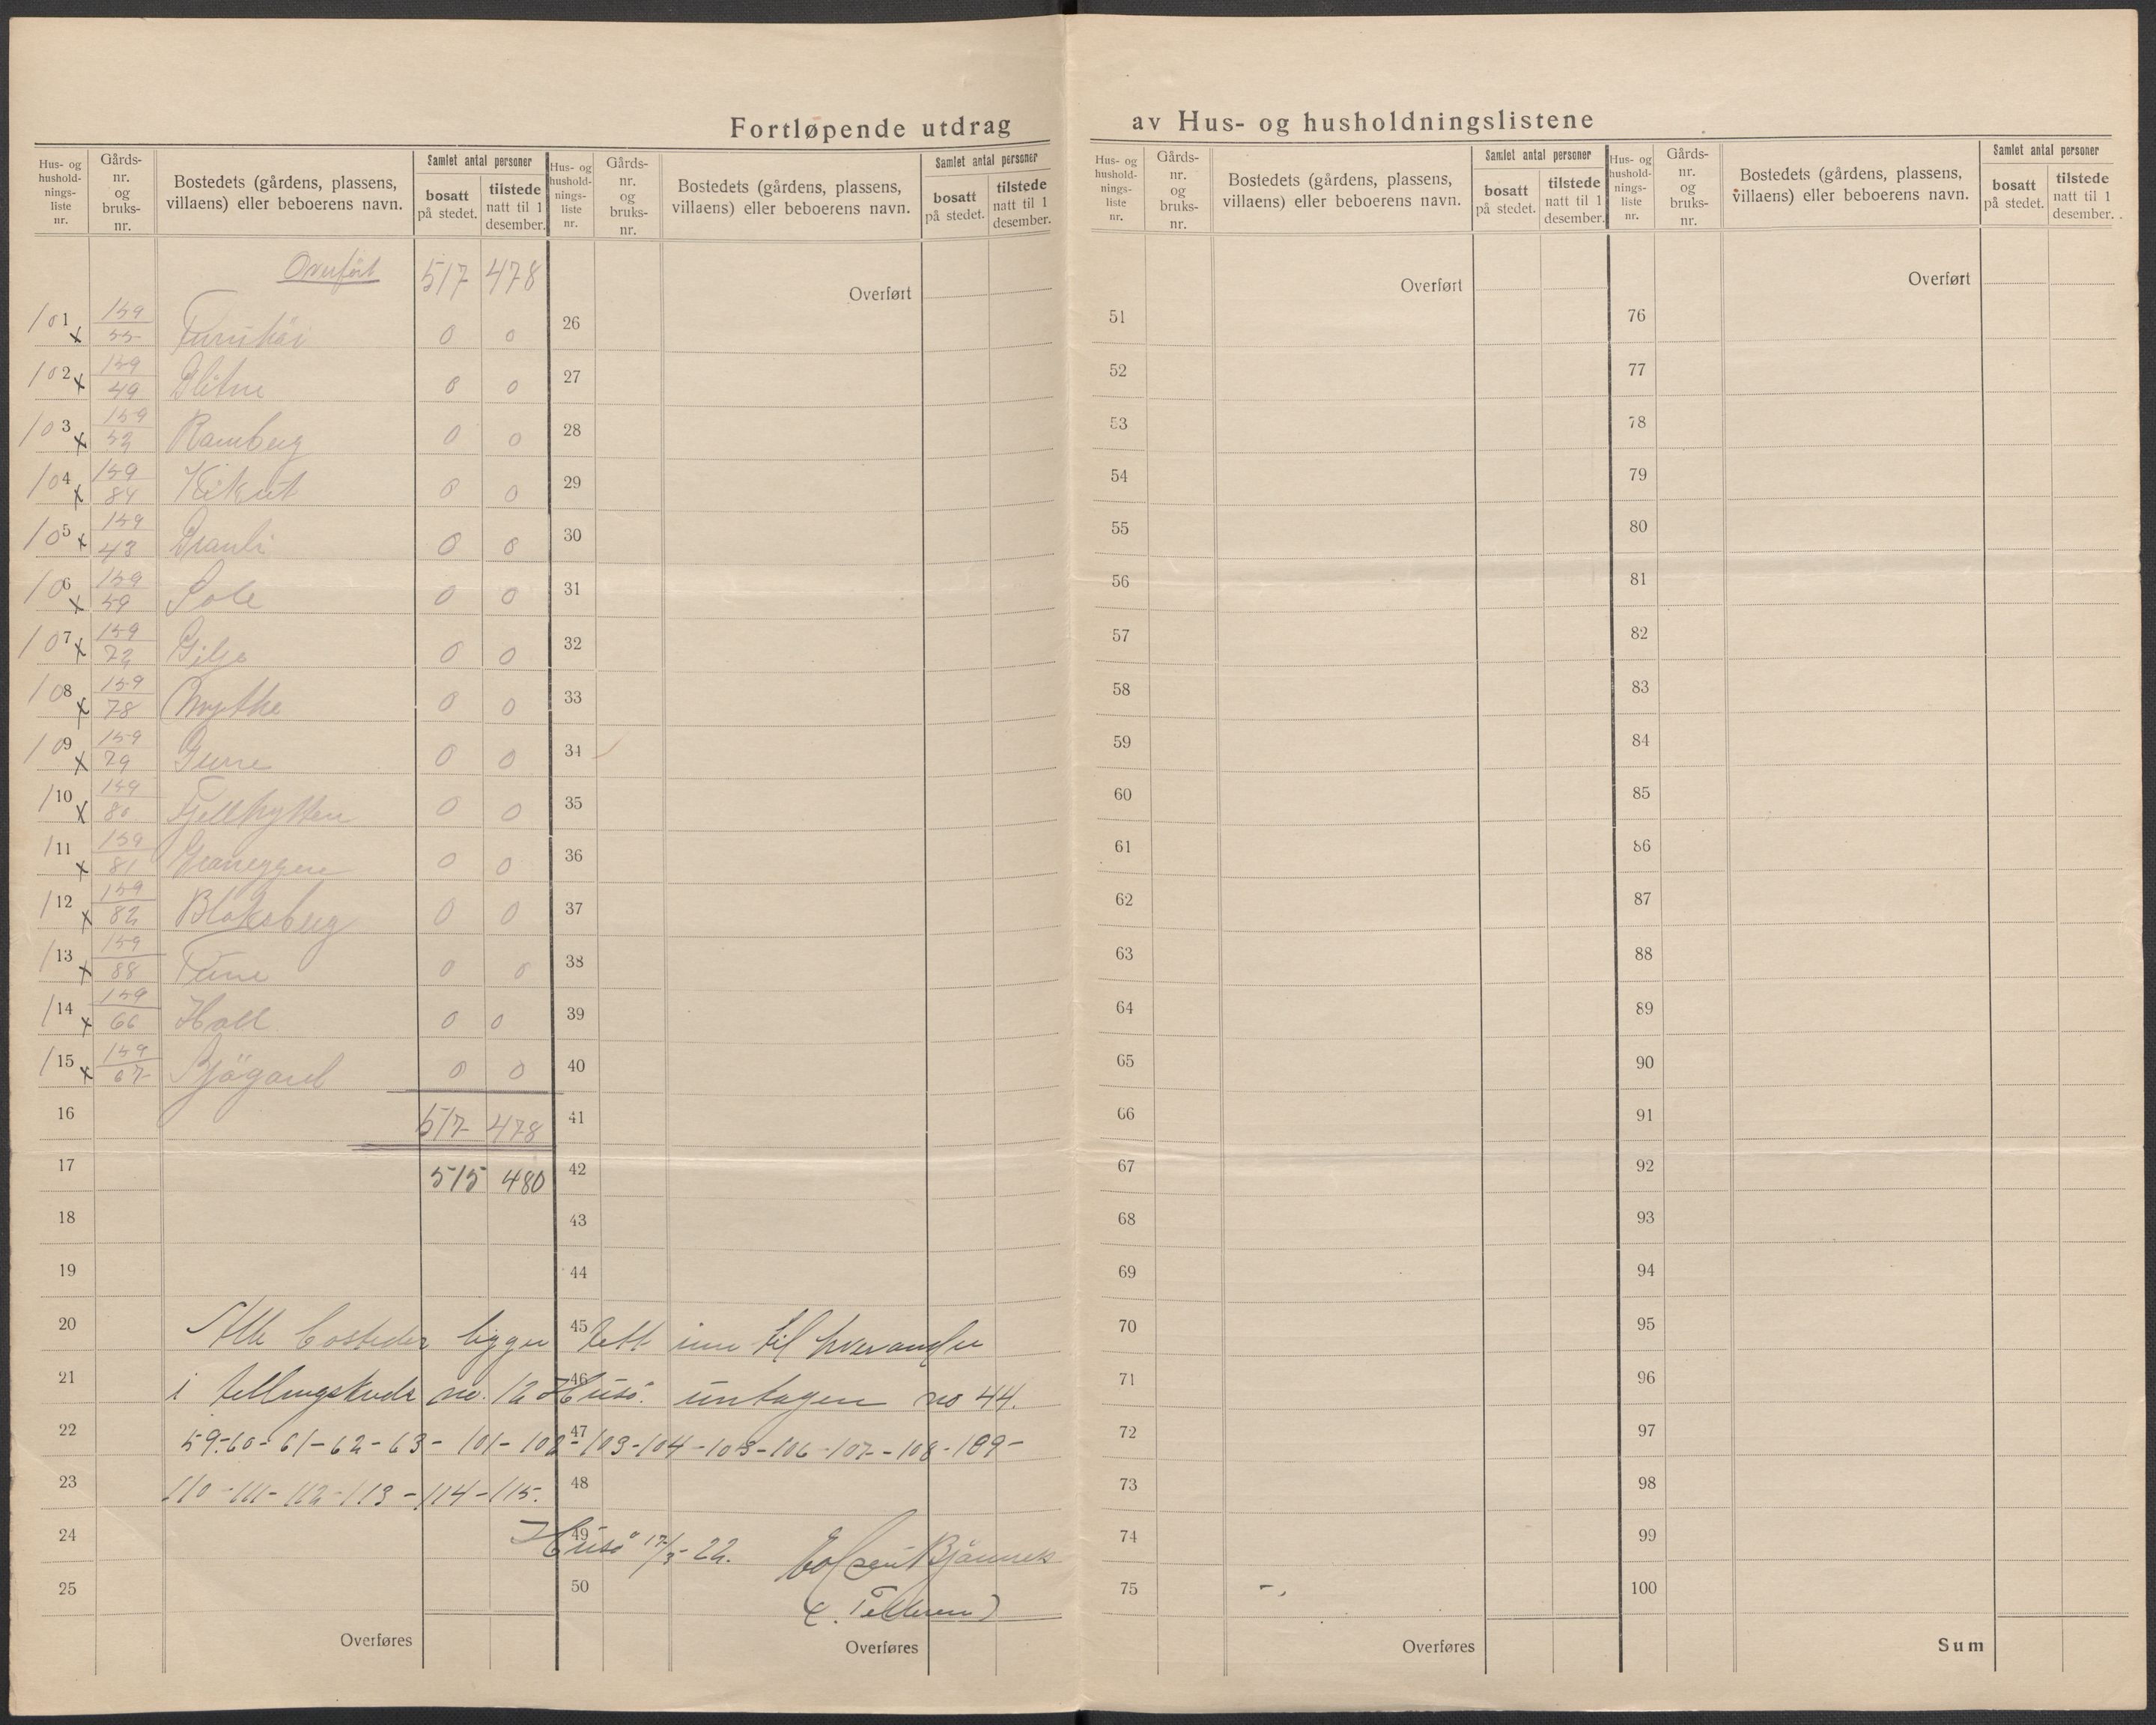 Fortløpende utdrag av Hus- og husholdningslistene
Hus- og husholdningsliste nr. | Gårds-nr. og bruks-nr. | Bostedets (gårdens, plassens, villaens) eller beboerens navn. | Samlet antal personer | bosatt på stedet. | tilstede natt til 1 desember.
Overført 517 478
101 x 159/55 Furuhöi 0 0
102 x 159/49 0 0
103 x 159/52 Ramberg 0 0
104 x 159/84 Kikut 0 0
105 x 159/43 Granli 0 0
106 x 159/59 Sole 0 0
107 x 159/72 0 0
108 x 159/78 0 0
109 x 159/79 Gurre 0 0
110 x 159/80 Fjellhytten 0 0
111 x 159/81 Graneggen 0 0
112 x 159/82 Bloksberg 0 0
113 x 159/88 0 0
114 x 159/66 0 0
115 x 159/67 0 0
16 517 478
17 515 480
18
19
20
21
22
23
24
25
Overføres
Hus- og husholdningsliste nr. | Gårds-nr. og bruks-nr. | Bostedets (gårdens, plassens, villaens) eller beboerens navn. | Samlet antal personer | bosatt på stedet. | tilstede natt til 1 desember.
Overført
26
27
28
29
30
31
32
33
34
35
36
37
38
39
40
41
42
43
44
45
46
47
48
49
50
Overføres
Alle bosteder ligger tett inn til hverandre
i tellingskrets no. 12 Husö. untagen no 44.
59-60-61-62-63-101-102-103-104-105-106-107-108-109-
110-111-112-113-114-115.
Husö 17/3-22.
(. Telleren)
Hus- og husholdningsliste nr. | Gårds-nr. og bruks-nr. | Bostedets (gårdens, plassens, villaens) eller beboerens navn. | Samlet antal personer | bosatt på stedet. | tilstede natt til 1 desember.
Overført
51
52
53
54
55
56
57
58
59
60
61
62
63
64
65
66
67
68
69
70
71
72
73
74
75
Overføres
Hus- og husholdningsliste nr. | Gårds-nr. og bruks-nr. | Bostedets (gårdens, plassens, villaens) eller beboerens navn. | Samlet antal personer | bosatt på stedet. | tilstede natt til 1 desember.
Overført
76
77
78
79
80
81
82
83
84
85
86
87
88
89
90
91
92
93
94
95
96
97
98
99
100
Sum